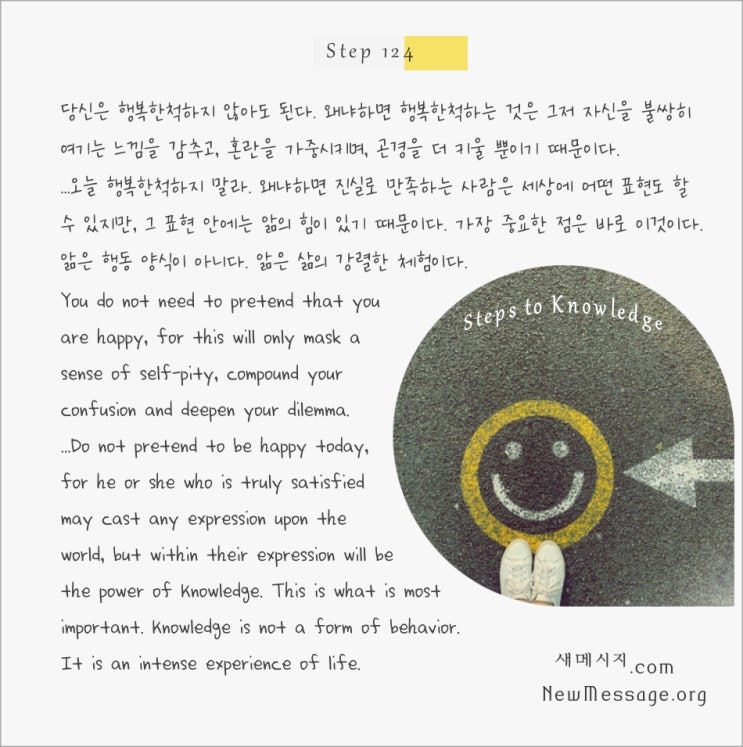 Step 124
당신은 행복한척하지 않아도 된다. 왜냐하면 행복한척하는 것은 그저 자신을 불쌍히
여기는 느낌을 감추고, 혼란을 가중시키며, 곤경을 더 키울 뿐이기 때문이다.
...오늘 행복한척하지 말라. 왜냐하면 진실로 만족하는 사람은 세상에 어떤 표현도 할
수 있지만, 그 표현 안에는 앎의 힘이 있기 때문이다. 가장 중요한 점은 바로 이것이다.
앎은 행동 양식이 아니다. 앎은 삶의 강렬한 체험이다.
You do not need to pretend that you
are happy, for this will only mask a
sense of self-pity, compound your
confusion and deepen your dilemma.
...Do not pretend to be happy today,
for he or she who is truly satisfied
may cast any expression upon the
world, but within their expression will be
the power of Knowledge. This is what is most
important. Knowledge is not a form of behavior.
It is an intense experience of life.
Steps to Knowledge
새메시지.com
NewMessage.org